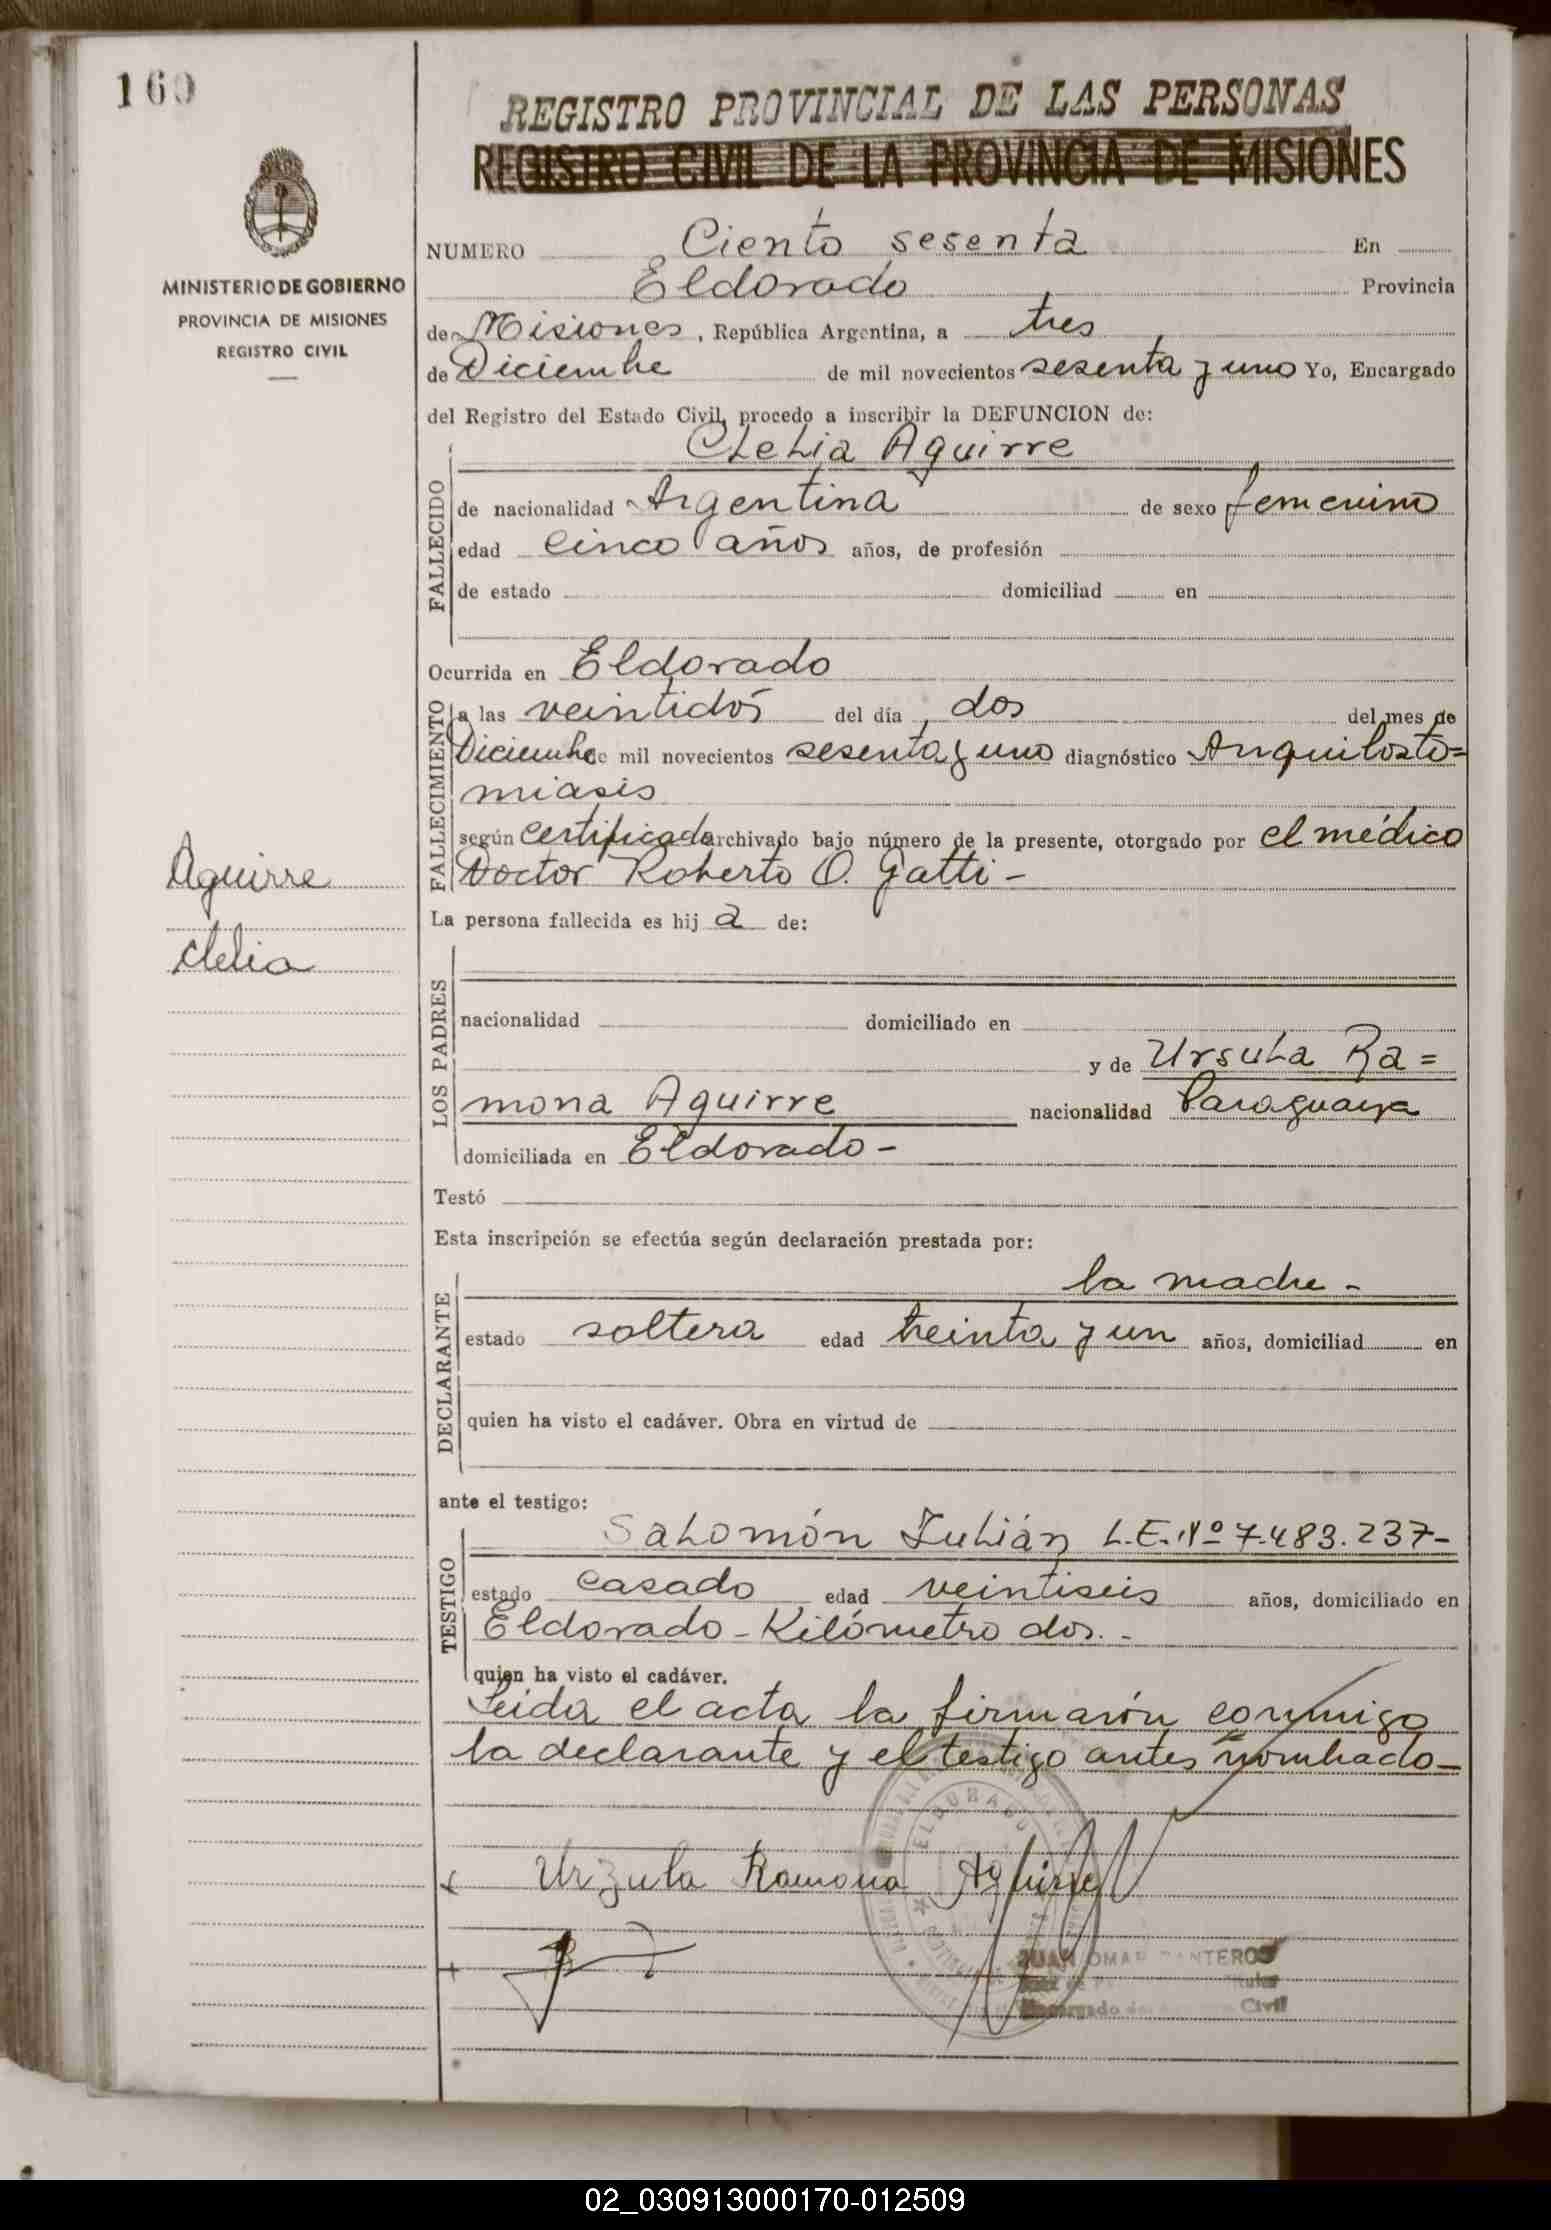 160
REGISTRO PROVINCIAL DE LAS PERSONAS
REGISTRO CIVIL DE LA PROVINCIA DE MISIONES
MINISTERIO DE GOBIERNO
PROVINCIA DE MISIONES
REGISTRO CIVIL
NUMERO Ciento sesenta En
Eldorado Provincia
de Misiones, República Argentina, a tres
de Diciembre de mil novecientos sesenta y uno Yo, Encargado
del Registro del Estado Civil, procedo a inscribir la DEFUNCION de:
Clelia Aguirre
FALLECIDO
de nacionalidad Argentina de sexo femenino
edad cinco años años, de profesión
de estado domiciliad en
Ocurrida en Eldorado
FALLECIMIENTO
a las veintidós del día dos del mes de
Diciembre de mil novecientos sesenta y uno diagnóstico Anquilosto=
miasis
según certificado archivado bajo número de la presente, otorgado por el médico
Doctor Roberto O. Gatti -
Aguirre
Clelia
La persona fallecida es hij a de:
LOS PADRES
nacionalidad domiciliado en
y de Ursula Ra=
mona Aguirre nacionalidad Paraguaya
domiciliada en Eldorado -
Testó
Esta inscripción se efectúa según declaración prestada por:
DECLARANTE
la madre -
estado soltera edad treinta y un años, domiciliad en
quien ha visto el cadáver. Obra en virtud de
ante el testigo:
TESTIGO
Salomón Julián L.E. Nº 7.483.237-
estado casado edad veintiseis años, domiciliado en
Eldorado - Kilómetro dos. -
quien ha visto el cadáver.
Leida el acta la firmarón conmigo
la declarante y el testigo antes nombrado -
ELDORADO
Urzula Ramona Aguirre
JUAN OMAR
Encargado del Civil
02_030913000170-012509